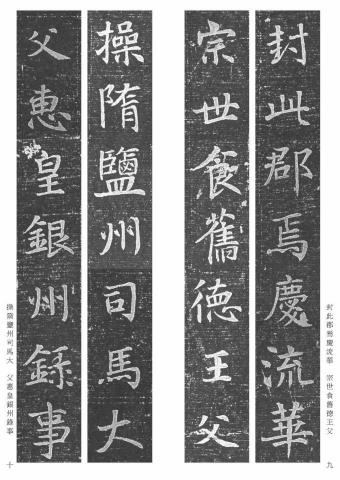 封此郡焉慶流華
宗世食舊德王父
封此郡焉慶流華　宗世食舊德王父
九
操隋鹽州司馬大
父惠皇銀州錄事
操隋鹽州司馬大　父惠皇銀州錄事
十